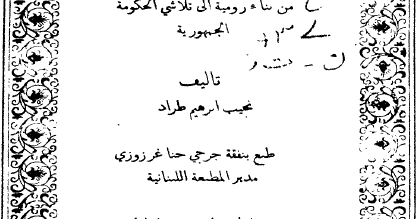 من بناء رومية الى تلاشي الحكومة
الجمهورية
تأليف
نجيب ابرهيم طراد
طبع بنفقة جرجي حنا غرزوزي
مدير المطبعة اللبنانية